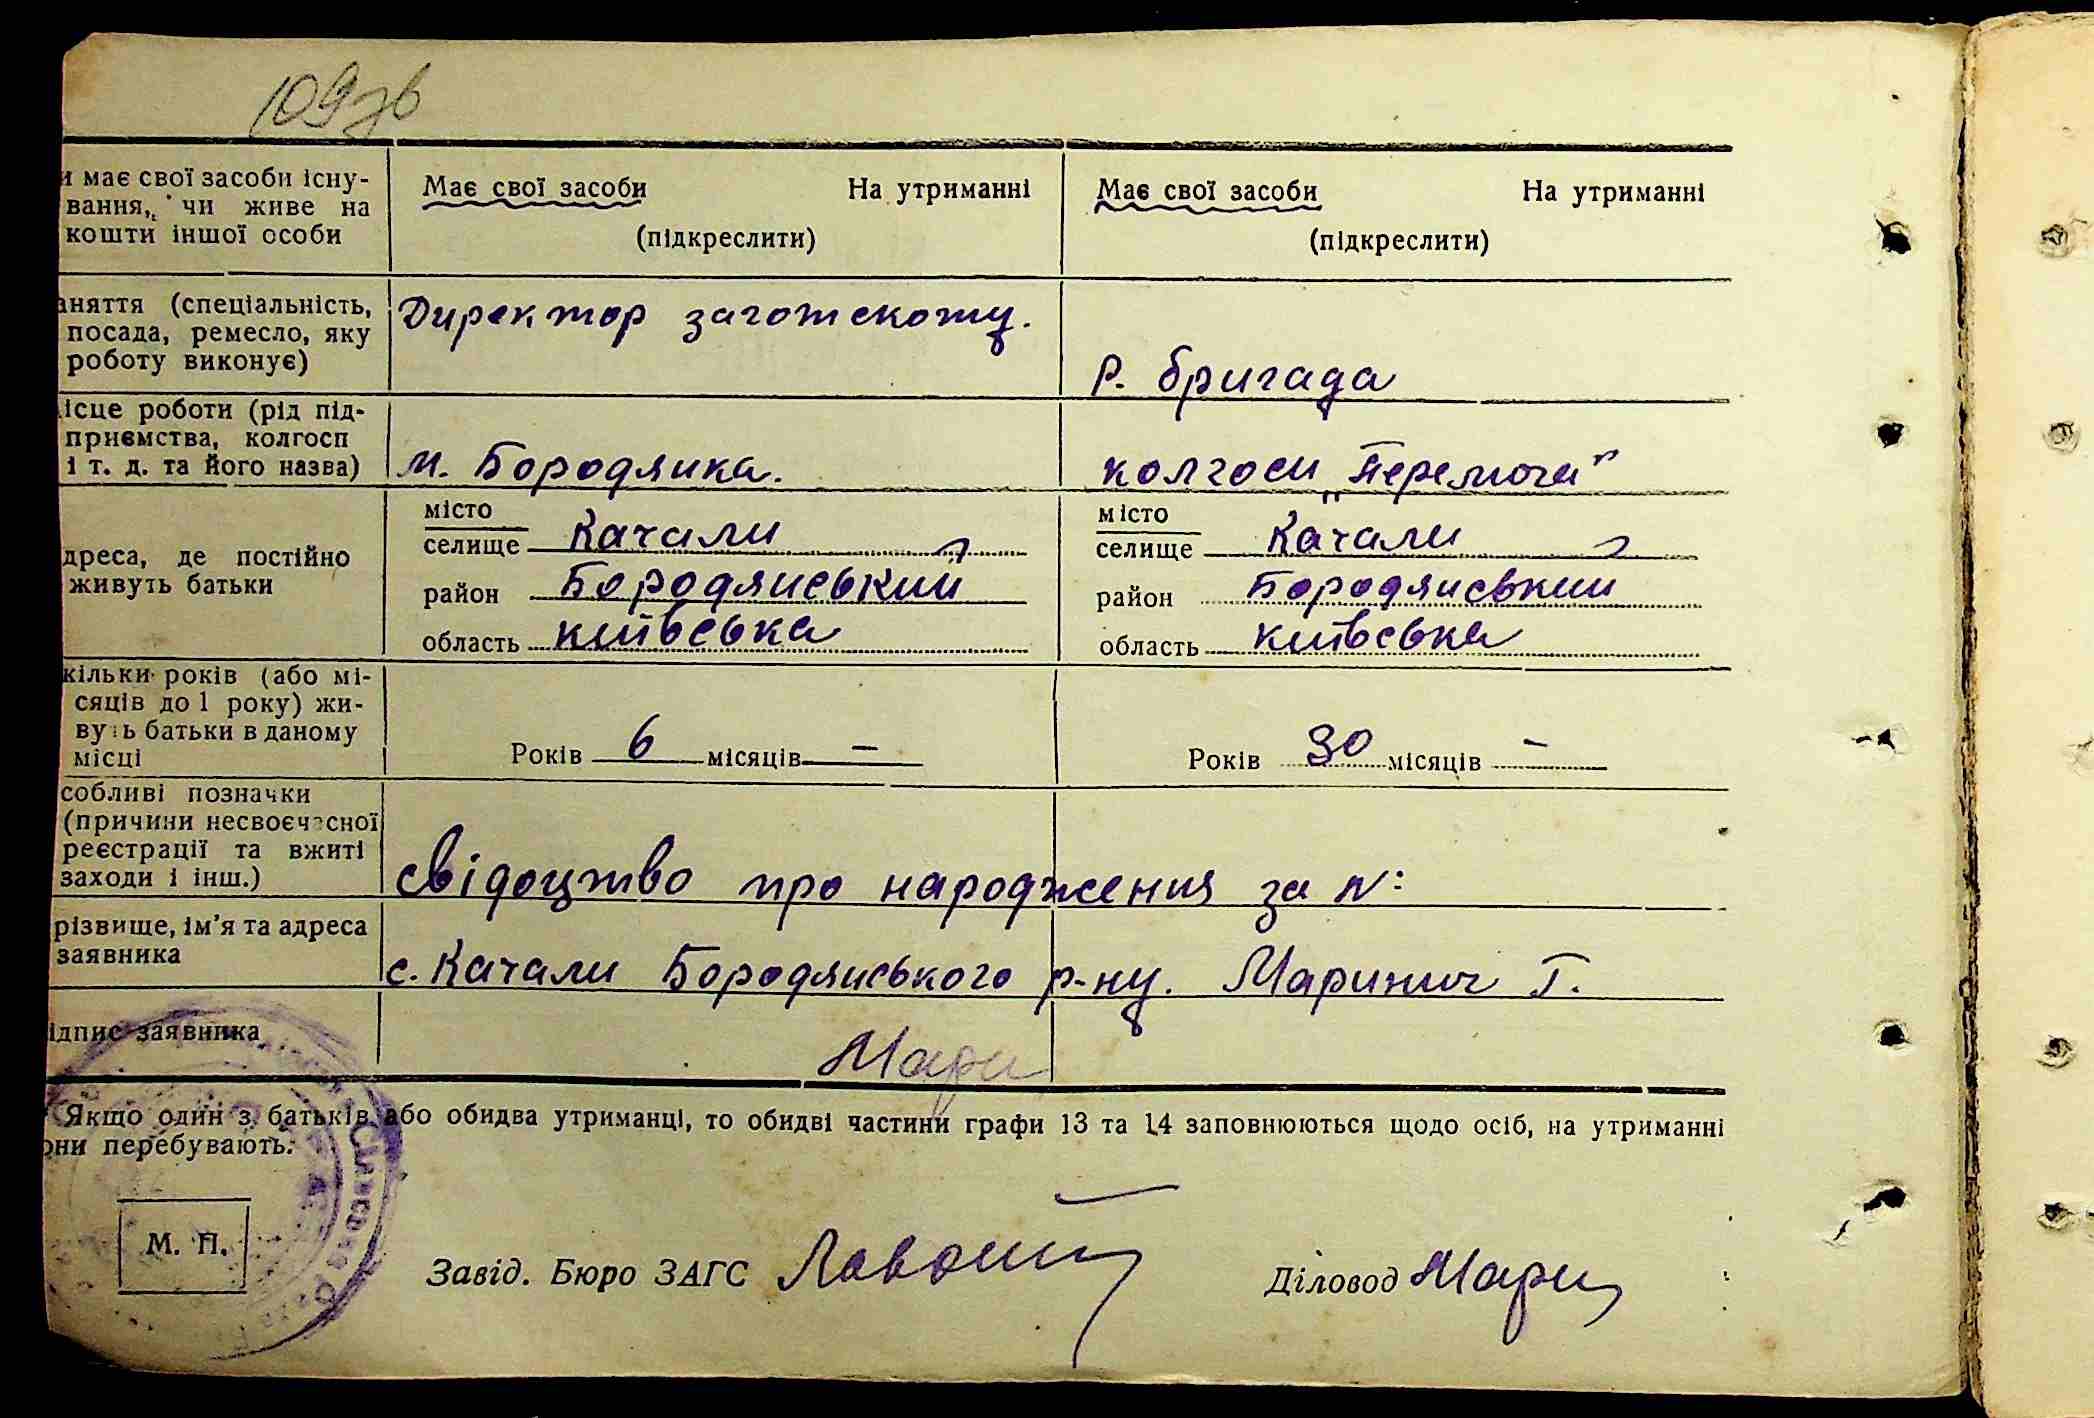 109зв
и має свої засоби існу-
вання, чи живе на
кошти іншої особи
Має свої засоби На утриманні
(підкреслити)
Має свої засоби На утриманні
(підкреслити)
аняття (спеціальність,
посада, ремесло, яку
роботу виконує)
Директор заготскоту.
Р. бригада
ісце роботи (рід під-
приємства, колгосп
і т. д. та його назва)
м. Бородянка.
колгосп „Перемога"
дреса, де постійно
живуть батьки
місто
селище Качали
район Бородянський
область київська
місто
селище Качали
район Бородянський
область київська
кільки років (або мі-
сяців до 1 року) жи-
вуть батьки в даному
місці
Років 6 місяців —
Років 30 місяців -
собливі позначки
(причини несвоєчасної
реєстрації та вжиті
заходи і інш.)
свідоцтво про народження за №:
різвище, ім'я та адреса
заявника
с. Качали Бородянського р-ну. Маринич Г.
ідпис заявника
Мари
Якщо один з батьків або обидва утриманці, то обидві частини графи 13 та 14 заповнюються щодо осіб, на утриманні
они перебувають.
М. П.
Завід. Бюро ЗАГС
Діловод Мари